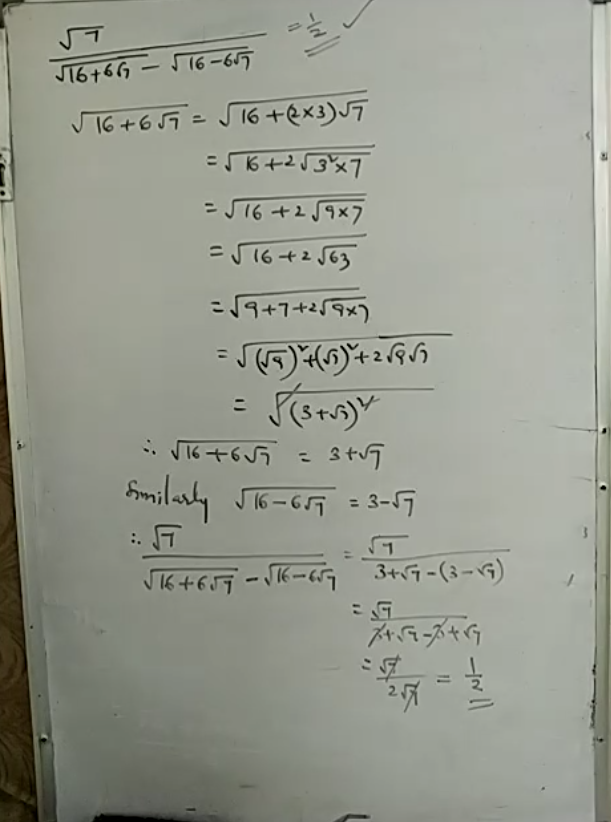 √7 / (√(16+6√7) − √(16−6√7)) = 1/2 ✓
√(16+6√7) = √(16+(2×3)√7)
= √(16+2√(3²×7))
= √(16+2√(9×7))
= √(16+2√63)
= √(9+7+2√(9×7))
= √((√9)²+(√7)²+2√9√7)
= √((3+√7)²)
∴ √(16+6√7) = 3+√7
Similarly √(16−6√7) = 3−√7
∴ √7 / (√(16+6√7) − √(16−6√7)) = √7 / (3+√7−(3−√7))
= √7 / (3+√7−3+√7)
= √7 / 2√7 = 1/2